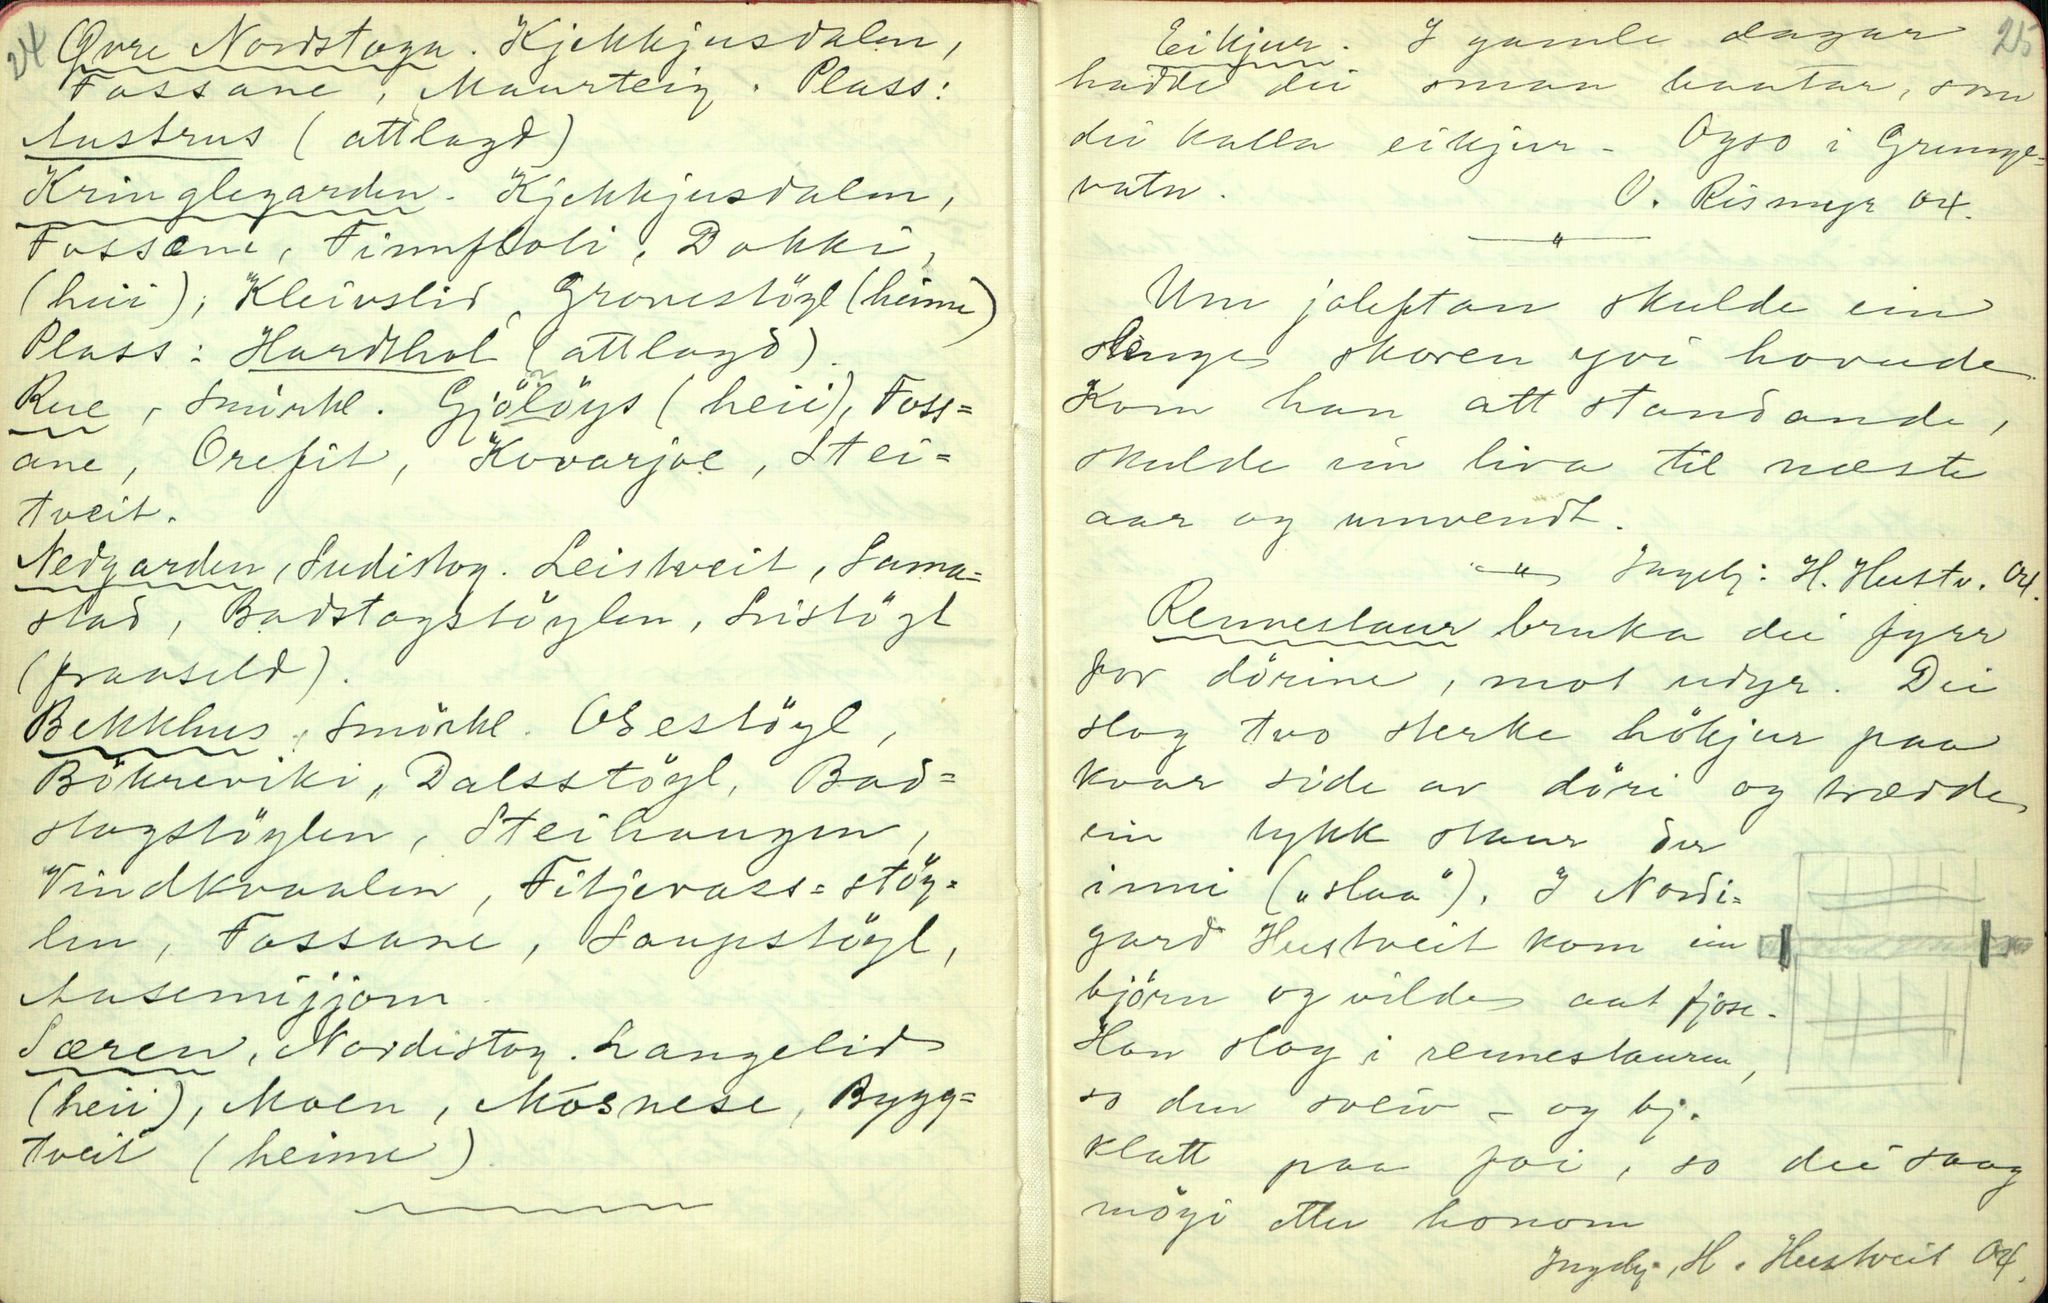 24
Övre Nordstoga. Kjekkjusdalen,
Fossane, Maurteig. Plass:
Austrus (attlagd)
Kringlegarden. Kjekkjusdalen,
Fossane, Finnfloti, Dokki,
(heii), Kleivslid, Grovestöyl (heime)
Plass: Hardthol (attlagd).
Rue, Smörkl. Gjölöys (heii), Foss=
ane, Orefit, Kovarjoe, Stei=
tveit.
Nedgarden, Sudistog. Leistveit, Sama=
stad, Badstogstöylen, Sristöyl
(fraaseld).
Bekkhus, Smörkl. Osestöyl,
Bökreviki, Dalsstöyl, Bad=
stogstöylen, Steihaugen,
Vindkvaalen, Fitjevass=stöy=
len, Fossane, Laupstöyl,
Aasemijjom.
Særen, Nordistog. Langelid
(heii), Moen, Mosnese, Bygg=
tveit (heime).
25
Eikjur. I gamle dagar
hadde dei smaa baatar, som
dei kalla eikjur – Ogso i Grunge=
vatn.
O. Rismyr Ox.
Um joleftan skulde ein
slenge skoren yvi hovude.
Kom han att standande,
skulde ein liva til næste
aar og umvendt.
Ingebj: H. Hustv. Ox.
Rennestaur bruka dei fyrr
for dörine, mot udyr. Dei
slog tvo sterke hökjur paa
kvar side av döri og trædde
ein tykk staur der
inni („slaa"). I Nordi=
gard Hustveit kom ein
björn og vilde aat fjose.
Han slog i rennestauren,
so den sveiv – og bj.
klatt paa foi, so dei saag
möyi etter honom
Ingebj. H. Hustveit Ox.